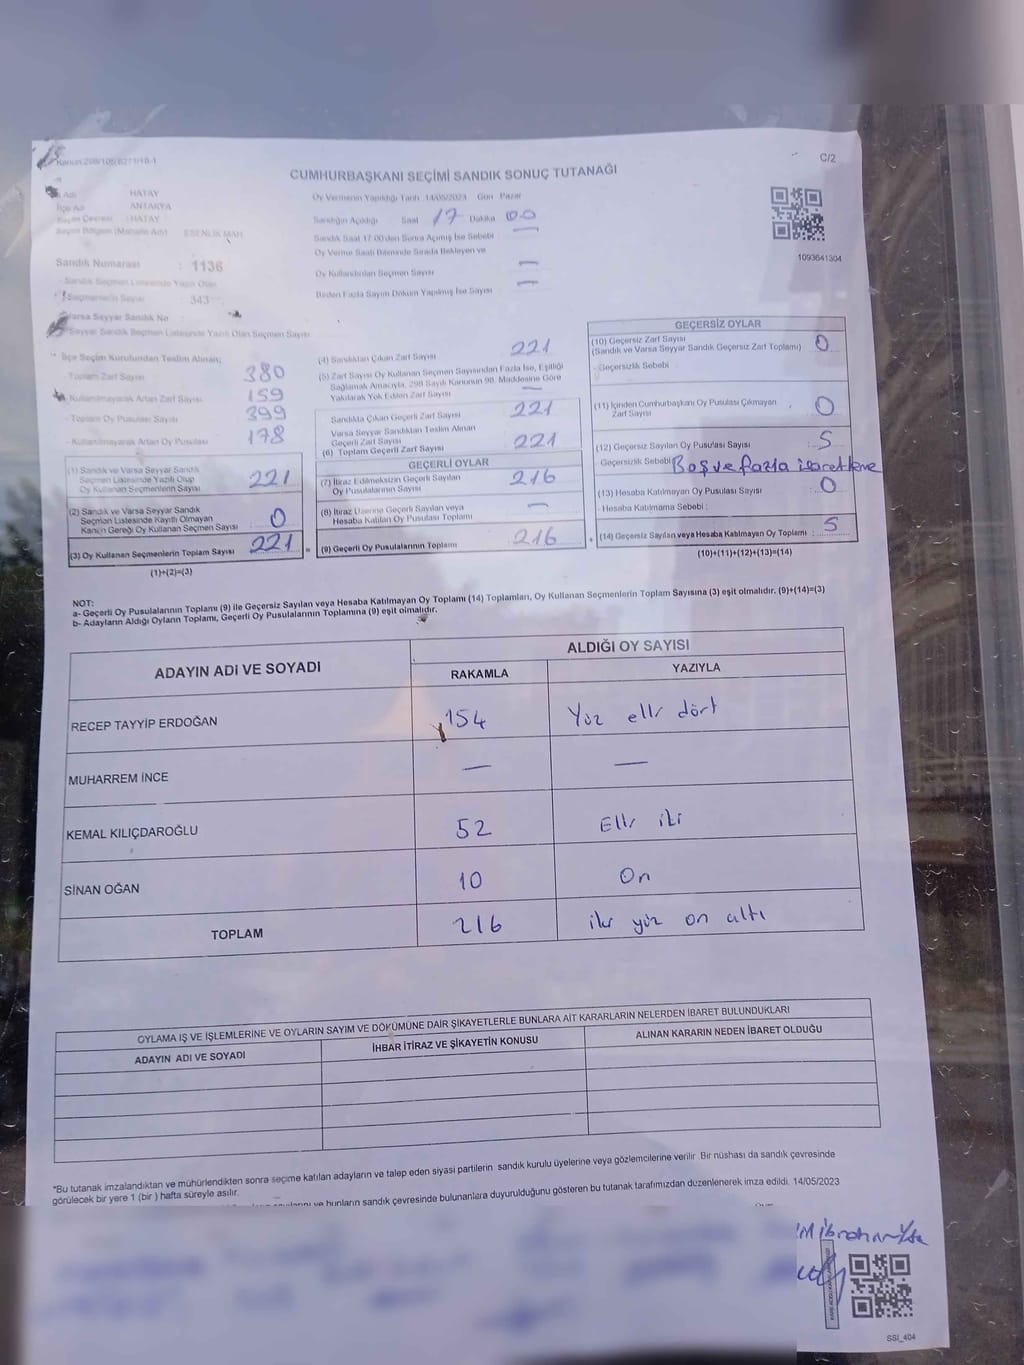 Kanun:298/105(6271/18-1
C/2
CUMHURBAŞKANI SEÇİMİ SANDIK SONUÇ TUTANAĞI
Adı HATAY
Oy Vermenin Yapıldığı Tarih 14/05/2023 Gün Pazar
İlçe Adı ANTAKYA
Seçim Çevresi : HATAY
Sandığın Açıldığı Saat 17 Dakika 00
Seçim Bölgesi (Mahalle Adı) ESENLİK MAH.
Sandık Saat 17:00'den Sonra Açımış İse Sebebi —
Oy Verme Saati Bitiminde Sırada Bekleyen ve
Oy Kullandırılan Seçmen Sayısı —
1093641304
Sandık Numarası : 1136
Sandık Seçmen Listesinde Yazılı Olan
Seçmenlerin Sayısı : 343
Birden Fazla Sayım Döküm Yapılmış İse Sayısı —
Varsa Seyyar Sandık No
Seyyar Sandık Seçmen Listesinde Yazılı Olan Seçmen Sayısı
İlçe Seçim Kurulundan Teslim Alınan;
- Toplam Zarf Sayısı 380
- Kullanılmayarak Artan Zarf Sayısı 159
- Toplam Oy Pusulası Sayısı 399
- Kullanılmayarak Artan Oy Pusulası 178
(1) Sandık ve Varsa Seyyar Sandık
Seçmen Listesinde Yazılı Olup
Oy Kullanan Seçmenlerin Sayısı 221
(2) Sandık ve Varsa Seyyar Sandık
Seçmen Listesinde Kayıtlı Olmayan
Kanun Gereği Oy Kullanan Seçmen Sayısı 0
(3) Oy Kullanan Seçmenlerin Toplam Sayısı 221 =
(1)+(2)=(3)
(4) Sandıktan Çıkan Zarf Sayısı 221
(5) Zarf Sayısı Oy Kullanan Seçmen Sayısından Fazla İse, Eşitliği
Sağlamak Amacıyla, 298 Sayılı Kanunun 98. Maddesine Göre
Yakılarak Yok Edilen Zarf Sayısı —
Sandıkta Çıkan Geçerli Zarf Sayısı 221
Varsa Seyyar Sandıktan Teslim Alınan
Geçerli Zarf Sayısı
(6) Toplam Geçerli Zarf Sayısı 221
GEÇERLİ OYLAR
(7) İtiraz Edilmeksizin Geçerli Sayılan
Oy Pusulalarının Sayısı 216
(8) İtiraz Üzerine Geçerli Sayılan veya
Hesaba Katılan Oy Pusulası Toplamı —
(9) Geçerli Oy Pusulalarının Toplamı 216 +
GEÇERSİZ OYLAR
(10) Geçersiz Zarf Sayısı
(Sandık ve Varsa Seyyar Sandık Geçersiz Zarf Toplamı) : 0
- Geçersizlik Sebebi :
(11) İçinden Cumhurbaşkanı Oy Pusulası Çıkmayan
Zarf Sayısı : 0
(12) Geçersiz Sayılan Oy Pusulası Sayısı : 5
Geçersizlik Sebebi Boş ve fazla işaretleme
(13) Hesaba Katılmayan Oy Pusulası Sayısı : 0
- Hesaba Katılmama Sebebi :
(14) Geçersiz Sayılan veya Hesaba Katılmayan Oy Toplamı : 5
(10)+(11)+(12)+(13)=(14)
NOT:
a- Geçerli Oy Pusulalarının Toplamı (9) ile Geçersiz Sayılan veya Hesaba Katılmayan Oy Toplamı (14) Toplamları, Oy Kullanan Seçmenlerin Toplam Sayısına (3) eşit olmalıdır. (9)+(14)=(3)
b- Adayların Aldığı Oyların Toplamı, Geçerli Oy Pusulalarının Toplamına (9) eşit olmalıdır.
ADAYIN ADI VE SOYADI
ALDIĞI OY SAYISI
RAKAMLA YAZIYLA
RECEP TAYYİP ERDOĞAN 154 Yüz elli dört
MUHARREM İNCE — —
KEMAL KILIÇDAROĞLU 52 Elli iki
SİNAN OĞAN 10 On
TOPLAM 216 iki yüz on altı
OYLAMA İŞ VE İŞLEMLERİNE VE OYLARIN SAYIM VE DÖKÜMÜNE DAİR ŞİKAYETLERLE BUNLARA AİT KARARLARIN NELERDEN İBARET BULUNDUKLARI
ADAYIN ADI VE SOYADI İHBAR İTİRAZ VE ŞİKAYETİN KONUSU ALINAN KARARIN NEDEN İBARET OLDUĞU
*Bu tutanak imzalandıktan ve mühürlendikten sonra seçime katılan adayların ve talep eden siyasi partilerin sandık kurulu üyelerine veya gözlemcilerine verilir. Bir nüshası da sandık çevresinde
görülecek bir yere 1 (bir ) hafta süreyle asılır.
ve bunların sandık çevresinde bulunanlara duyurulduğunu gösteren bu tutanak tarafımızdan düzenlenerek imza edildi. 14/05/2023
SSI_404